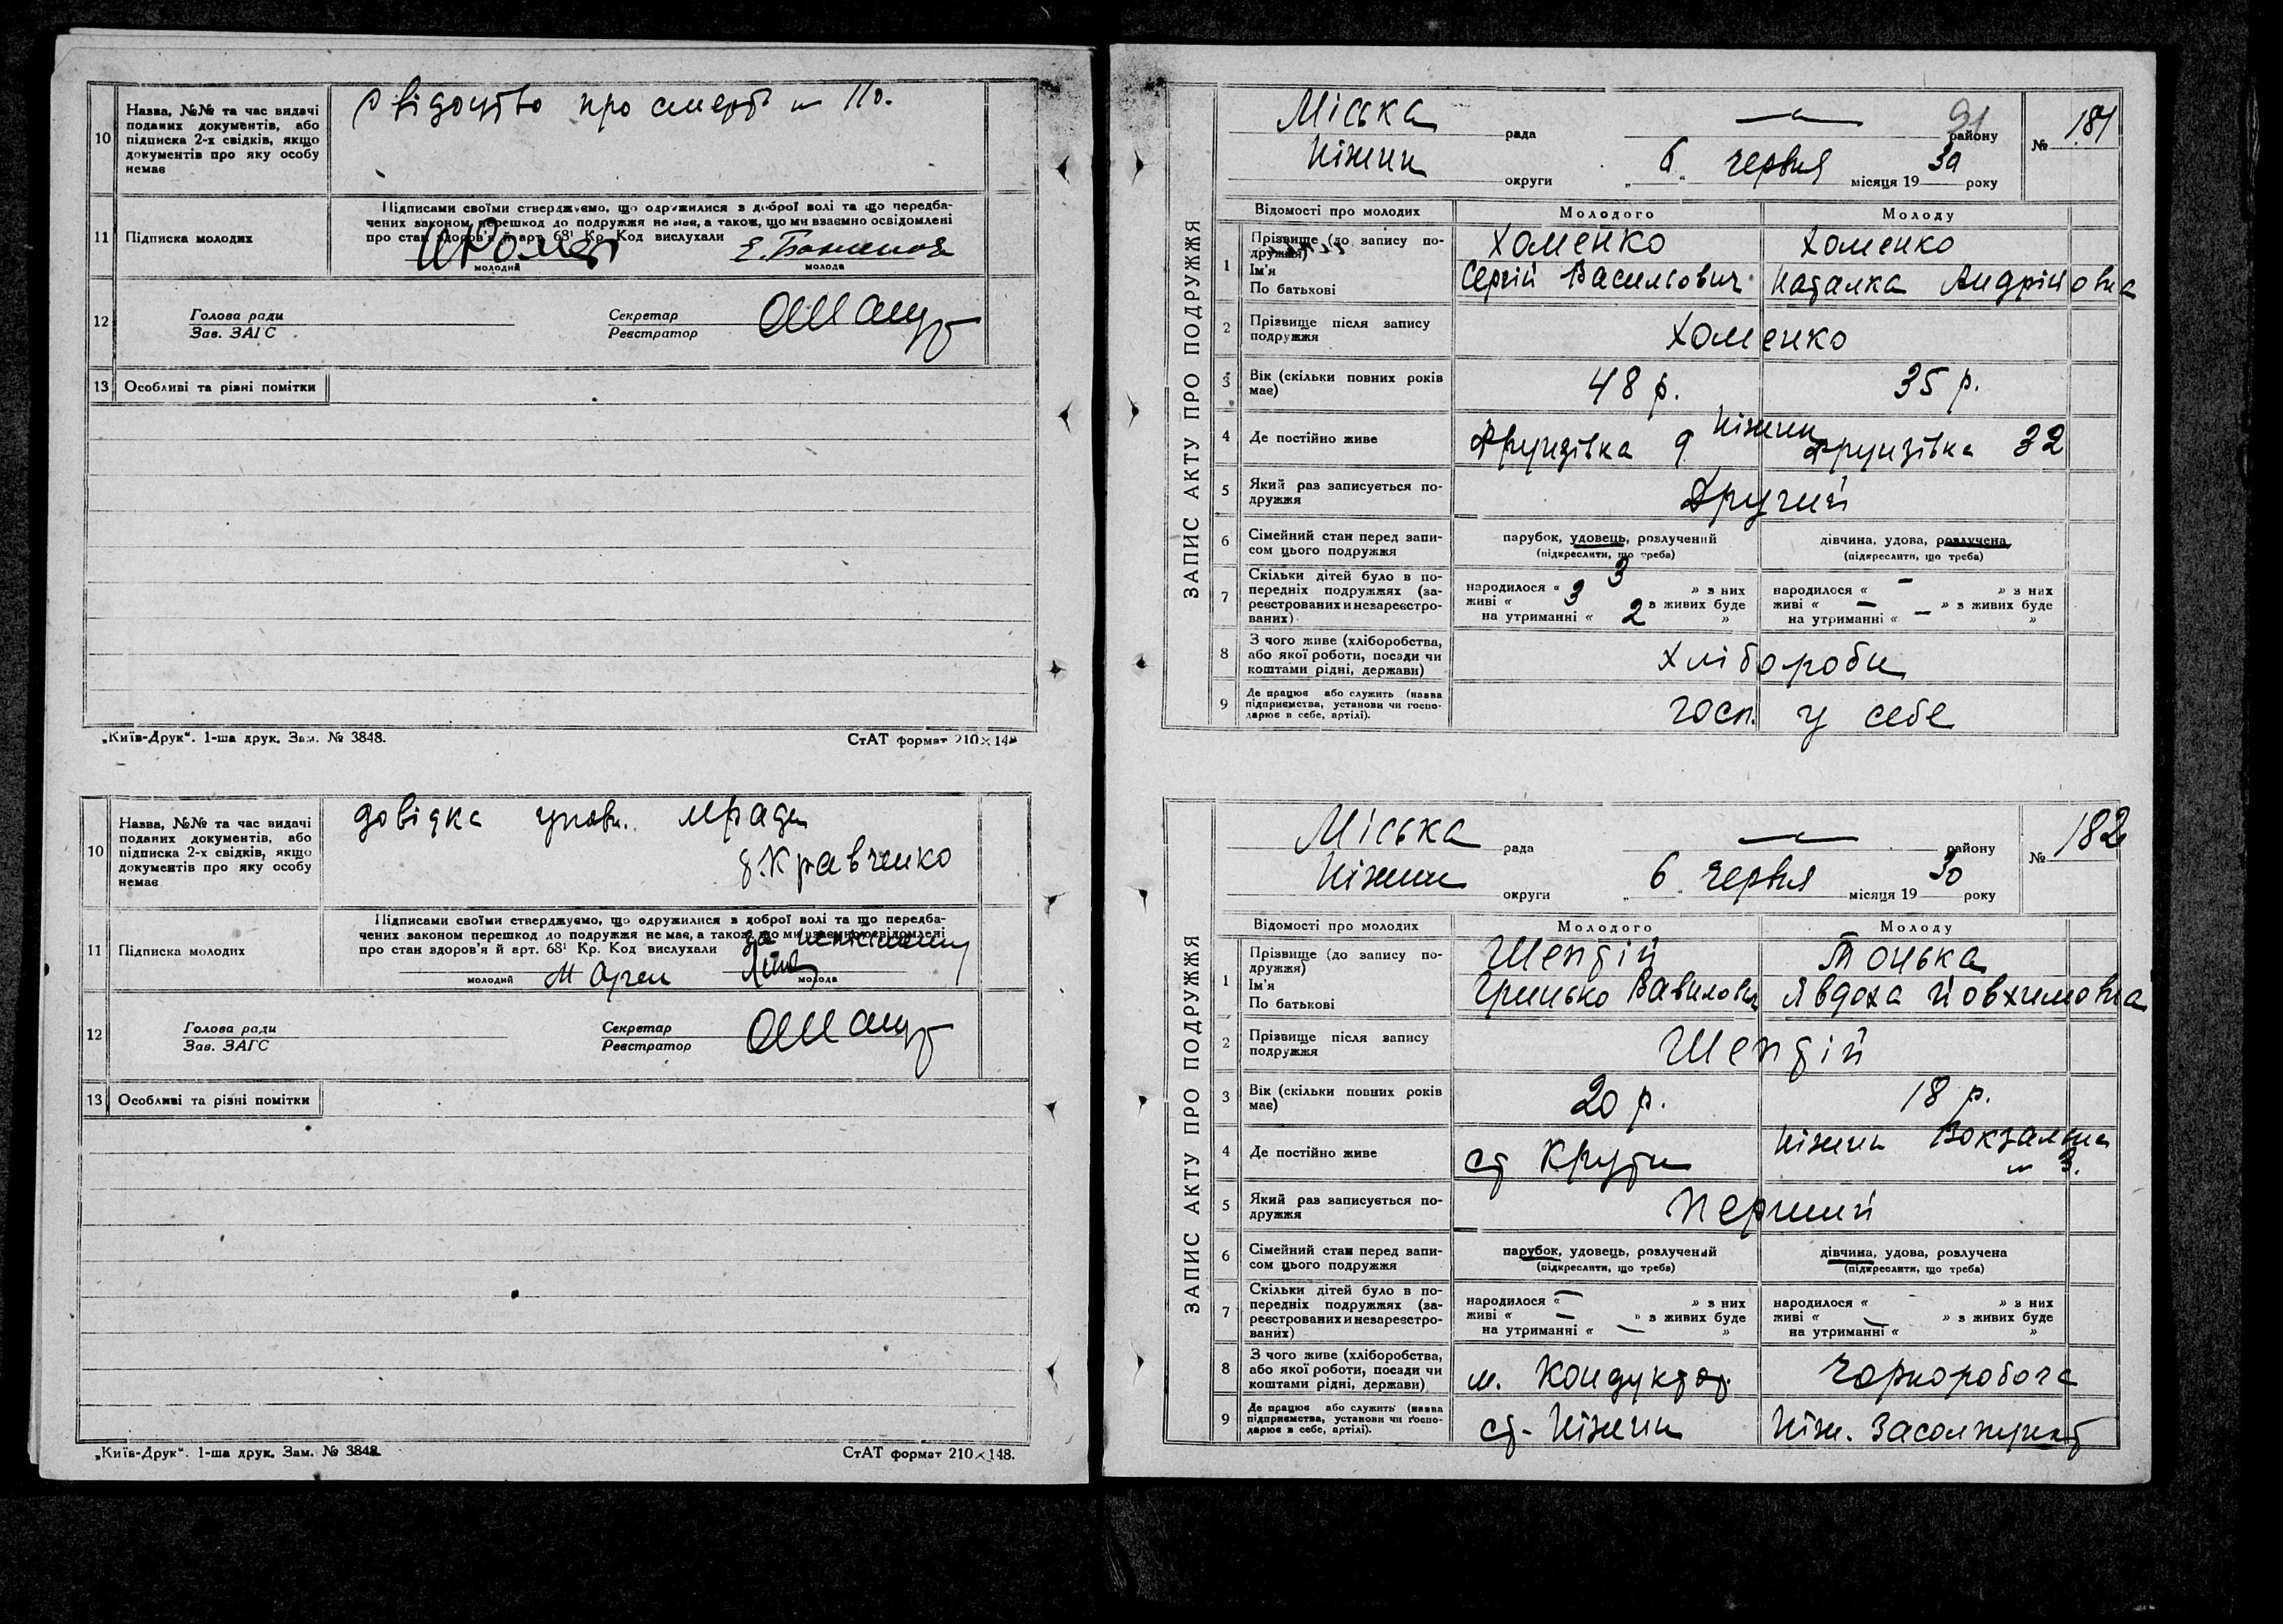 10
Назва, №№ та час видачі
поданих документів, або
підписка 2-х свідків, якщо
документів про яку особу
немає
свідоцтво про смерть № 110.
11
Підписка молодих
Підписами своїми стверджуємо, що одружилися з доброї волі та що передба-
чених законом перешкод до подружжя не має, а також, що ми взаємно освідомлені
про стан здоров'я й арт. 68¹ Кр. Код вислухали
молодий
молода
12
Голова ради
Зав. ЗАГС
Секретар
Реєстратор
13
Особливі та різні помітки
„Київ-Друк“. 1-ша друк. Зам. № 3848.
СтАТ формат 210×148
10
Назва, №№ та час видачі
поданих документів, або
підписка 2-х свідків, якщо
документів про яку особу
немає
довідка упов. мради
Кравченко
11
Підписка молодих
Підписами своїми стверджуємо, що одружилися з доброї волі та що передба-
чених законом перешкод до подружжя не має, а також, що ми взаємно освідомлені
про стан здоров'я й арт. 68¹ Кр. Код вислухали
за неписьменну
молодий
молода
12
Голова ради
Зав. ЗАГС
Секретар
Реєстратор
13
Особливі та різні помітки
„Київ-Друк“. 1-ша друк. Зам. № 3848.
СтАТ формат 210×148.
ЗАПИС АКТУ ПРО ПОДРУЖЖЯ
91
Міська рада — району
№ 181
Ніжин округи „ 6 “ червня місяця 1930 року
Відомості про молодих
Молодого
Молоду
1
Прізвище (до запису по-
дружжя)
Ім'я
По батькові
Хоменко
Хоменко
Сергій Васильович
Наталка Андріїовна
2
Прізвище після запису
подружжя
Хоменко
3
Вік (скільки повних років
має)
48 р.
35 р.
4
Де постійно живе
Ніжин
Фрунзівка 9
Фрунзівка 32
5
Який раз записується по-
дружжя
Другий
6
Сімейний стан перед запи-
сом цього подружжя
парубок, удовець, розлучений
(підкреслити, що треба)
дівчина, удова, розлучена
(підкреслити, що треба)
7
Скільки дітей було в по-
передніх подружжях (за-
реєстрованих и незареєстро-
ваних)
народилося « 3 » з них
живі « 3 » з живих буде
на утриманні « 2 »
народилося « — » з них
живі « — » з живих буде
на утриманні « — »
8
З чого живе (хліборобства,
або якої роботи, посади чи
коштами рідні, держави)
хлібороби
9
Де працює або служить (назва
підприємства, установи чи госпо-
дарює в себе, артілі).
госп. у себе
ЗАПИС АКТУ ПРО ПОДРУЖЖЯ
Міська рада — району
№ 182
Ніжин округи „ 6 “ червня місяця 1930 року
Відомості про молодих
Молодого
Молоду
1
Прізвище (до запису по-
дружжя)
Ім'я
По батькові
Шептій
Тонька
Гринько Вавилович
Явдоха Йовхимовна
2
Прізвище після запису
подружжя
Шептій
3
Вік (скільки повних років
має)
20 р.
18 р.
4
Де постійно живе
ст Крути
Ніжин Вокзальна
№ 3.
5
Який раз записується по-
дружжя
перший
6
Сімейний стан перед запи-
сом цього подружжя
парубок, удовець, розлучений
(підкреслити, що треба)
дівчина, удова, розлучена
(підкреслити, що треба)
7
Скільки дітей було в по-
передніх подружжях (за-
реєстрованих и незареєстро-
ваних)
народилося « — » з них
живі « — » з живих буде
на утриманні « — »
народилося « » з них
живі « — » з живих буде
на утриманні « »
8
З чого живе (хліборобства,
або якої роботи, посади чи
коштами рідні, держави)
м. Кондуктор.
чорноробоча
9
Де працює або служить (назва
підприємства, установи чи госпо-
дарює в себе, артілі).
ст. Ніжин
Ніж. Засолпункт